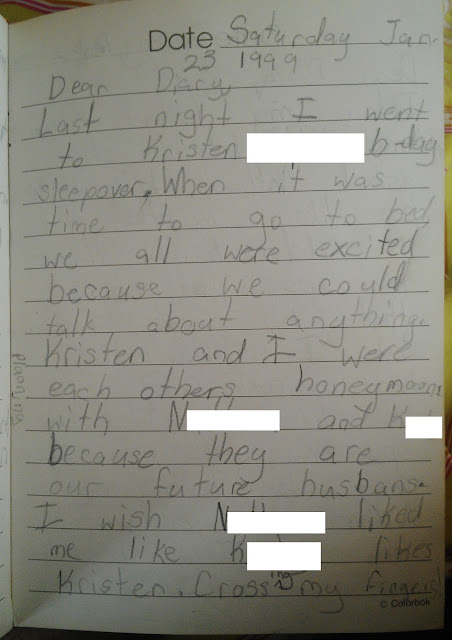 Date Saturday Jan.
23 1999
Dear Diary,
Last night I went
to Kristen b-day
sleepover, When it was
time to go to bed
we all were excited
because we could
talk about anything.
Kristen and I were
planning
each others honeymoons
with N and K
because they are
our future husbans.
I wish N liked
me like K likes
Kristen. Crossing my fingers!
© Colorbok